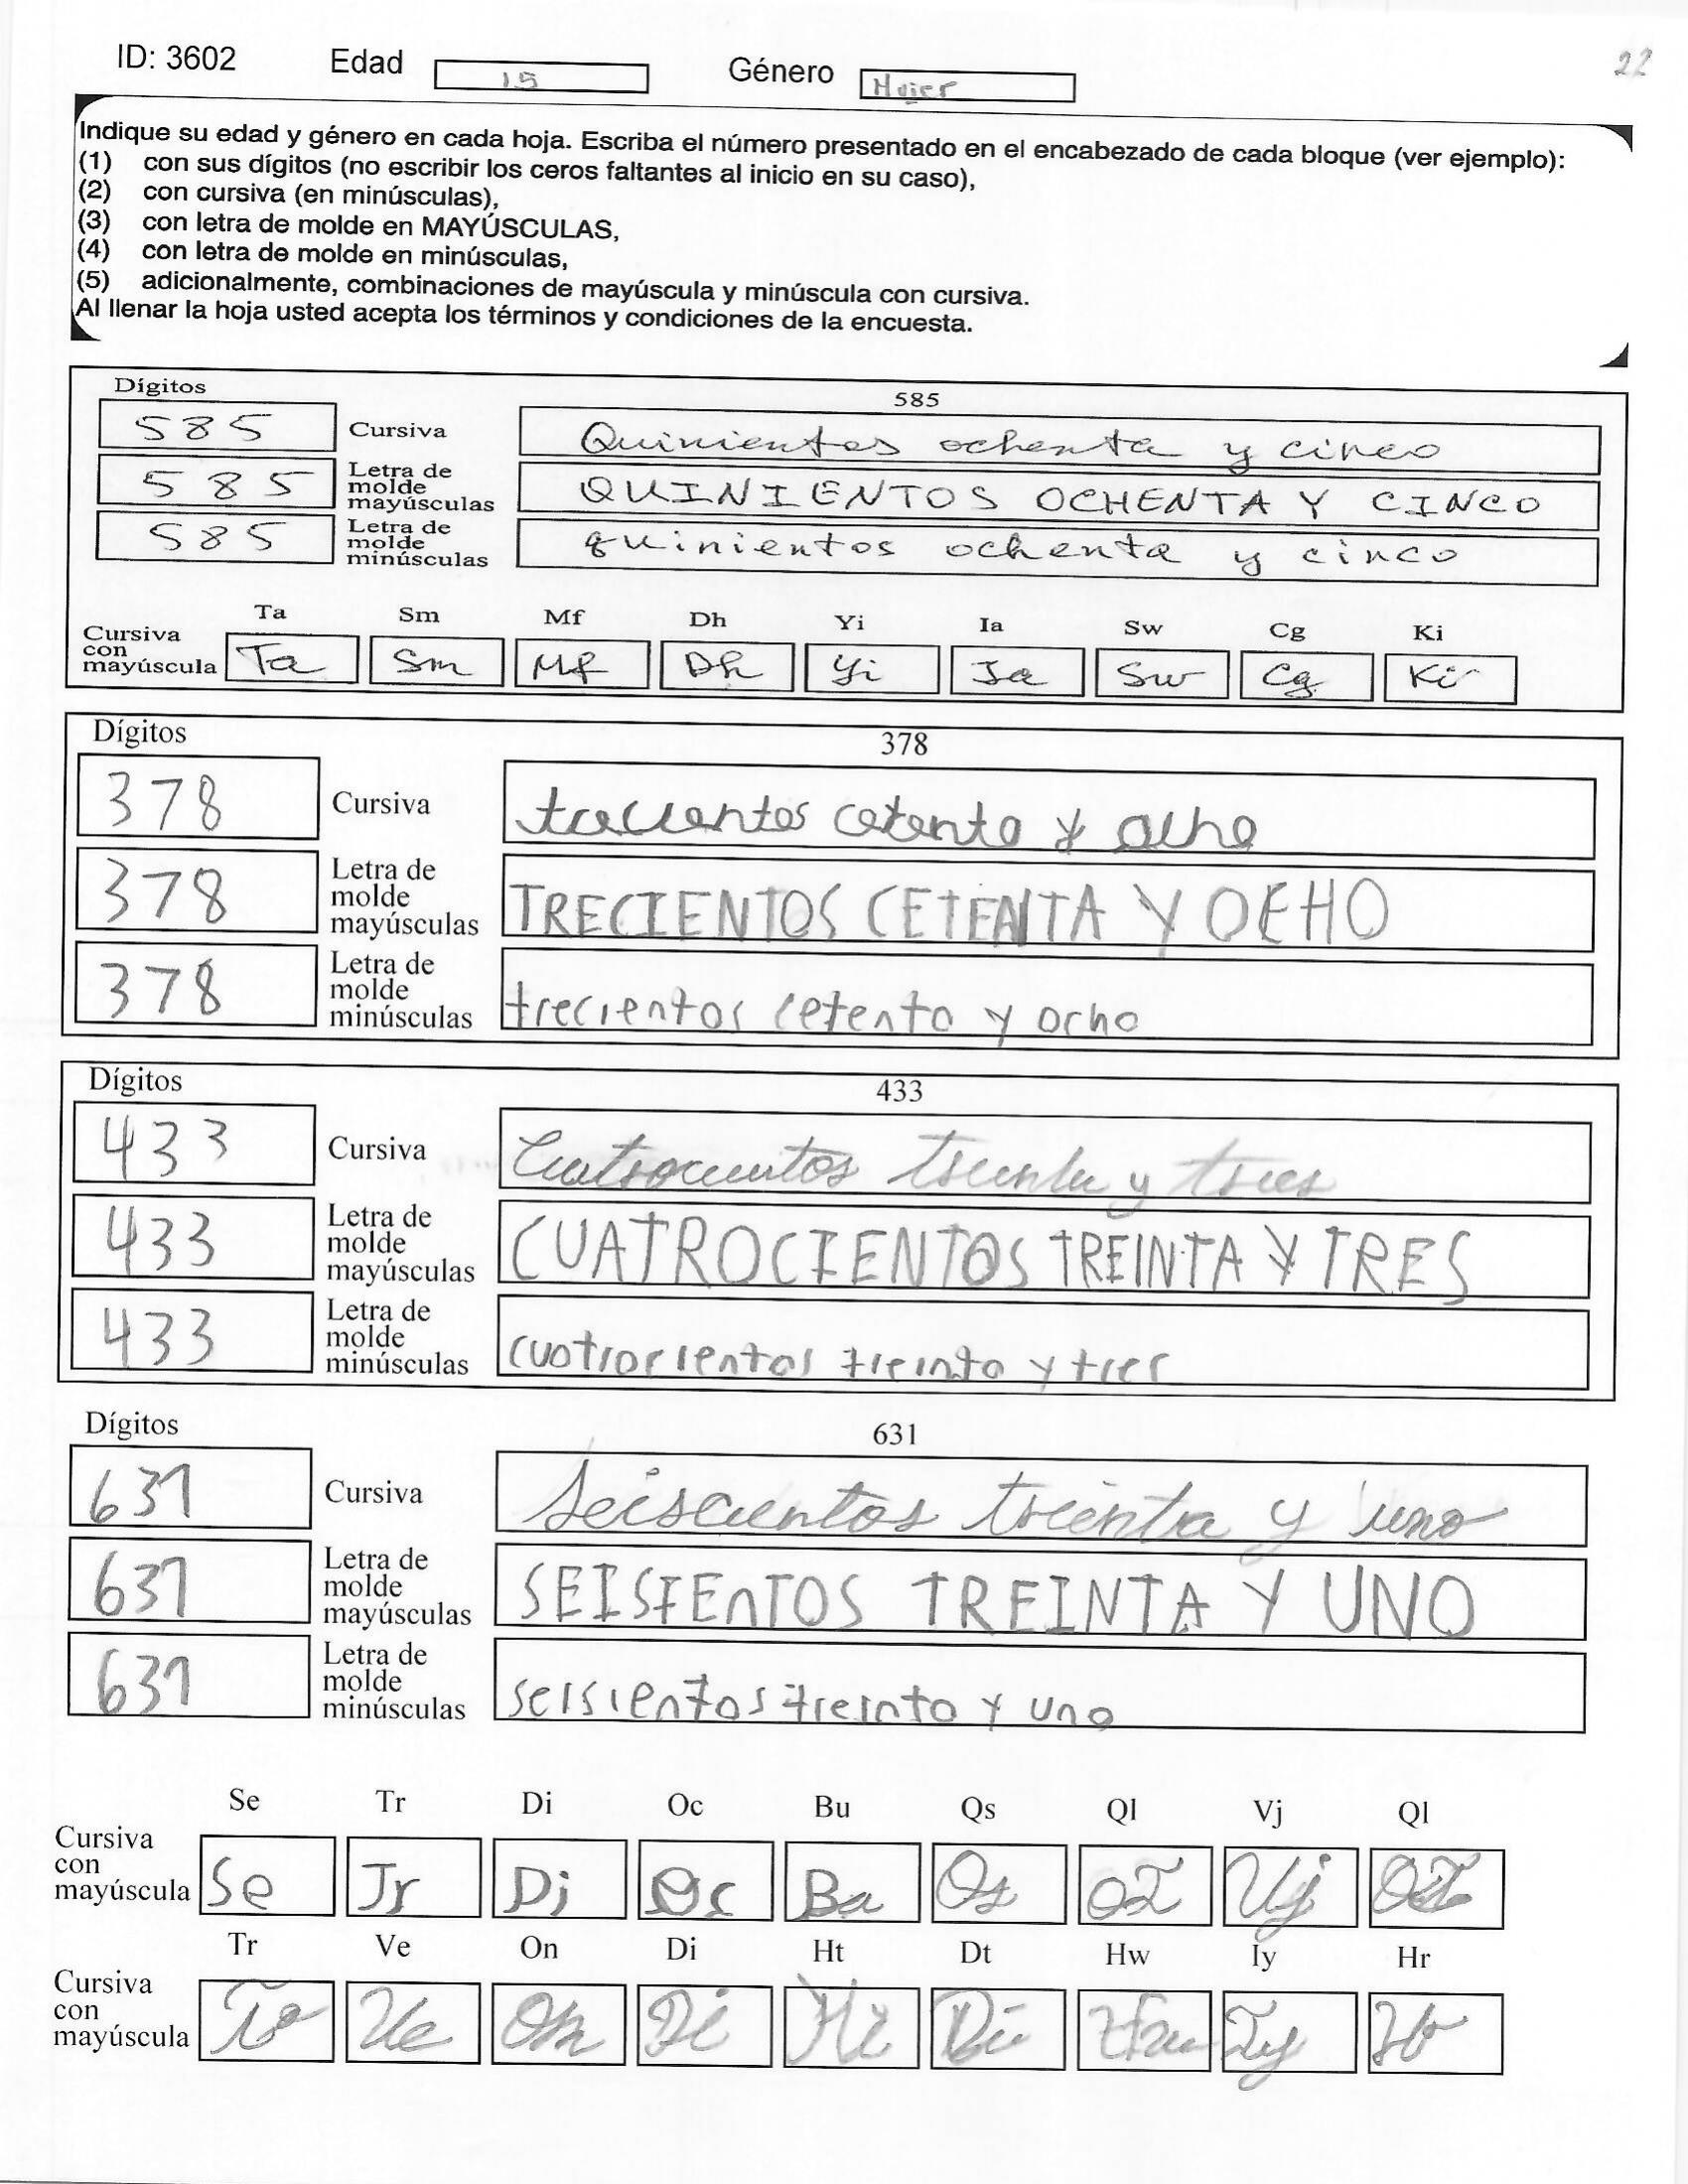 ID: 3602 Edad 15 Género Mujer 22
Indique su edad y género en cada hoja. Escriba el número presentado en el encabezado de cada bloque (ver ejemplo):
(1) con sus dígitos (no escribir los ceros faltantes al inicio en su caso),
(2) con cursiva (en minúsculas),
(3) con letra de molde en MAYÚSCULAS,
(4) con letra de molde en minúsculas,
(5) adicionalmente, combinaciones de mayúscula y minúscula con cursiva.
Al llenar la hoja usted acepta los términos y condiciones de la encuesta.
Dígitos 585
585 Cursiva Quinientos ochenta y cinco
585 Letra de molde mayúsculas QUINIENTOS OCHENTA Y CINCO
585 Letra de molde minúsculas quinientos ochenta y cinco
Ta Sm Mf Dh Yi Ia Sw Cg Ki
Cursiva con mayúscula Ta Sm Mf Dh Yi Ia Sw Cg Ki
Dígitos 378
378 Cursiva trecientos cetenta y ocho
378 Letra de molde mayúsculas TRECIENTOS CETENTA Y OCHO
378 Letra de molde minúsculas trecientos cetenta y ocho
Dígitos 433
433 Cursiva Cuatrocientos treinta y tres
433 Letra de molde mayúsculas CUATROCIENTOS TREINTA Y TRES
433 Letra de molde minúsculas cuatrocientos treinta y tres
Dígitos 631
631 Cursiva Seiscientos treinta y uno
631 Letra de molde mayúsculas SEISIENTOS TREINTA Y UNO
631 Letra de molde minúsculas seisientos treinta y uno
Se Tr Di Oc Bu Qs Ql Vj Ql
Cursiva con mayúscula Se Tr Di Oc Ba Qs Vj
Tr Ve On Di Ht Dt Hw Iy Hr
Cursiva con mayúscula Tr Ve On Di Hw Iy Hr